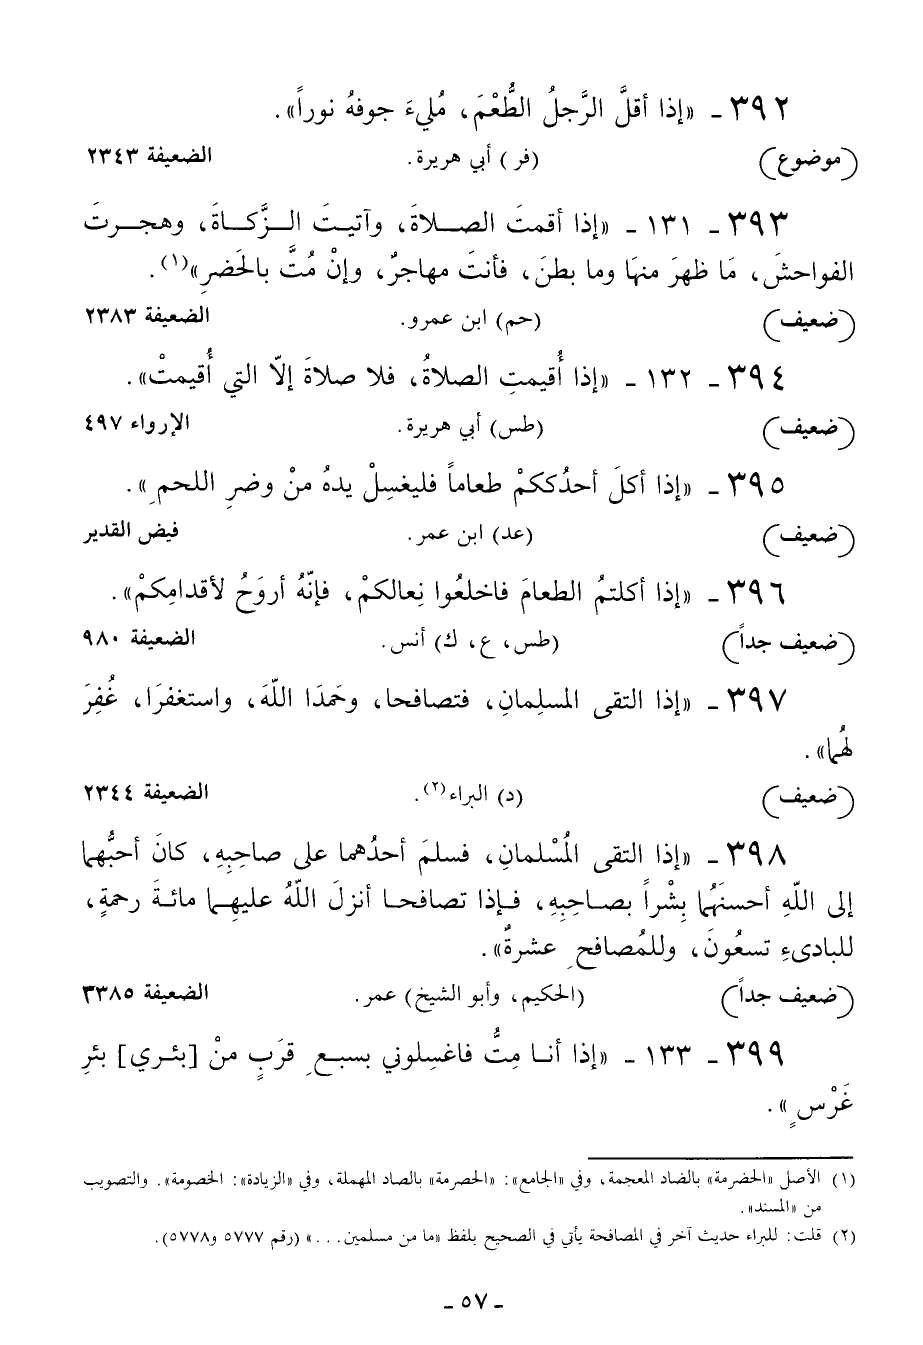 ٣٩٢ ـ «إذا أقلَّ الرَّجلُ الطُّعْمَ، مُليءَ جوفهُ نوراً».
(موضوع) (فر) أبي هريرة. الضعيفة ٢٣٤٣
٣٩٣ ـ ١٣١ ـ «إذا أقمتَ الصلاةَ، وآتيتَ الزَّكاةَ، وهجرتَ
الفواحشَ، مَا ظهرَ منهَا وما بطنَ، فأنتَ مهاجرٌ، وإنْ مُتَّ بالحَضرِ»(١).
(ضعيف) (حم) ابن عمرو. الضعيفة ٢٣٨٣
٣٩٤ ـ ١٣٢ ـ «إذا أُقيمتِ الصلاةُ، فلا صلاةَ إلّا التي أُقيمتْ».
(ضعيف) (طس) أبي هريرة. الإرواء ٤٩٧
٣٩٥ ـ «إذا أكلَ أحدُككمْ طعاماً فليغسِلْ يدهُ منْ وضرِ اللحمِ».
(ضعيف) (عد) ابن عمر. فيض القدير
٣٩٦ ـ «إذا أكلتمُ الطعامَ فاخلعُوا نِعالكمْ، فإنّهُ أروَحُ لأقدامِكمْ».
(ضعيف جداً) (طس، ع، ك) أنس. الضعيفة ٩٨٠
٣٩٧ ـ «إذا التقى المسلِمانِ، فتصافحا، وحَمدَا اللّهَ، واستغفرَا، غُفِرَ
لهُما».
(ضعيف) (د) البراء(٢). الضعيفة ٢٣٤٤
٣٩٨ ـ «إذا التقى المُسْلمانِ، فسلمَ أحدُهما على صاحبِهِ، كانَ أحبُّهما
إلى اللّهِ أحسنَهُما بِشْراً بصاحِبِهِ، فإذا تصافحا أنزلَ اللّهُ عليهِما مائةَ رحمةٍ،
للبادىءِ تسعُونَ، وللمُصافحِ عشرةٌ».
(ضعيف جداً) (الحكيم، وأبو الشيخ) عمر. الضعيفة ٣٣٨٥
٣٩٩ ـ ١٣٣ ـ «إذا أنا مِتُّ فاغسِلوني بسبعِ قرَبٍ منْ [بئري] بئرِ
غَرْسٍ».
(١) الأصل «الحضرمة» بالضاد المعجمة، وفي «الجامع»: «الحصرمة» بالصاد المهملة، وفي «الزيادة»: الخصومة». والتصويب
من «المسند».
(٢) قلت: للبراء حديث آخر في المصافحة يأتي في الصحيح بلفظ «ما من مسلمين...» (رقم ٥٧٧٧ و٥٧٧٨).
ـ ٥٧ ـ